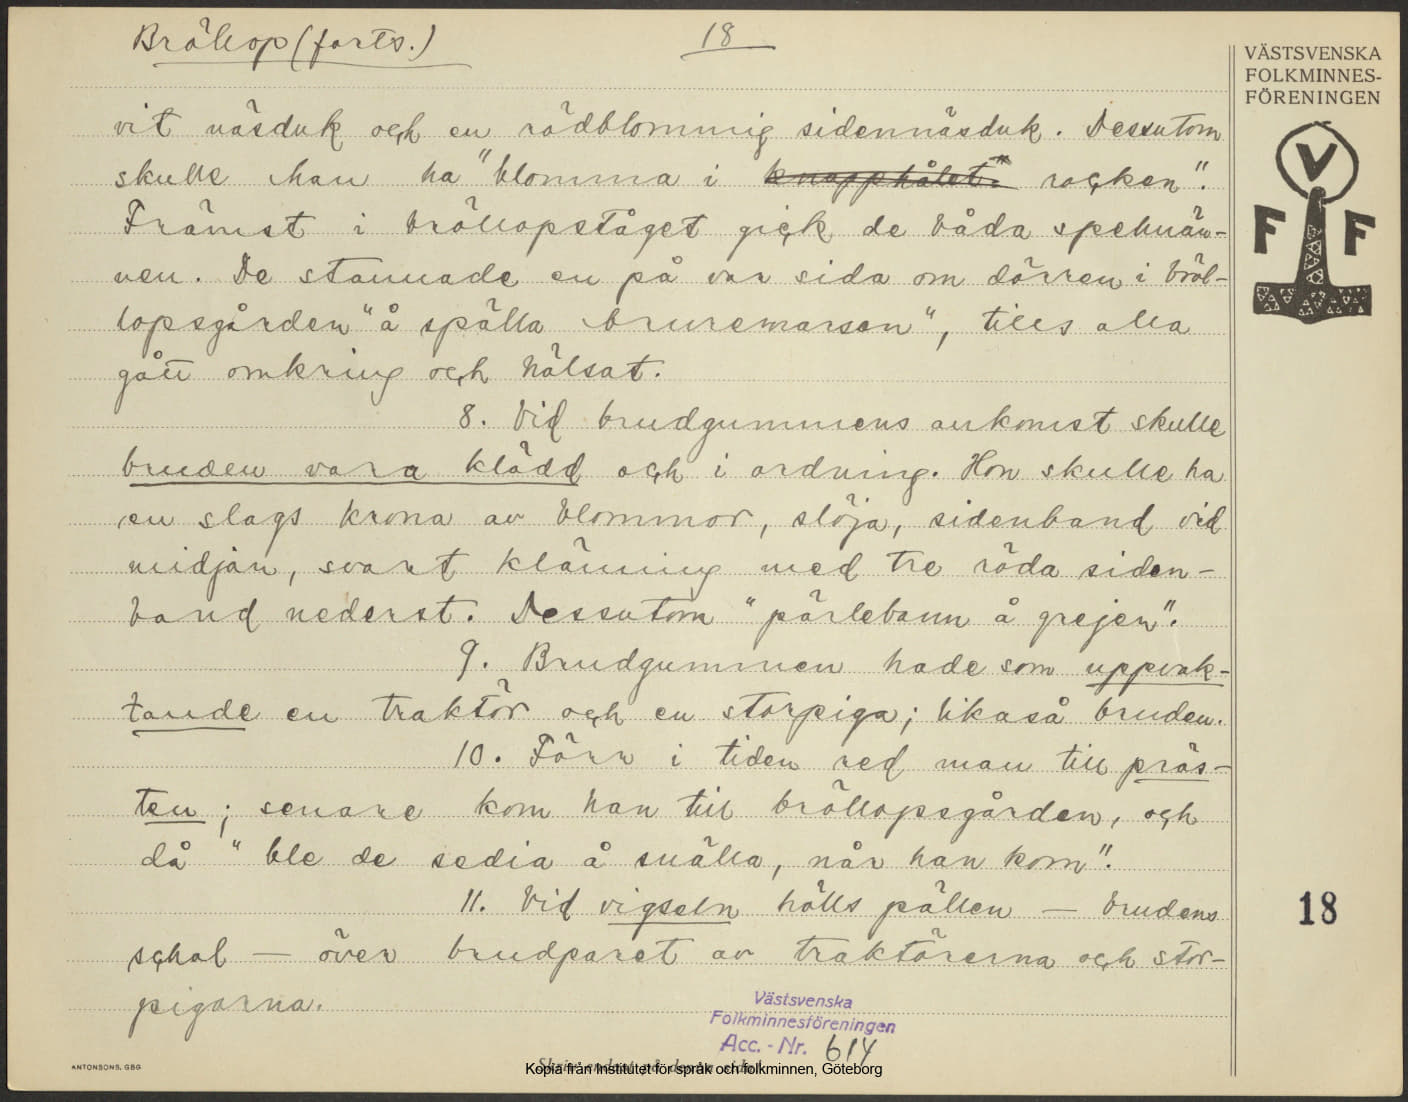 Bröllop (forts.)
18
VÄSTSVENSKA
FOLKMINNES-
FÖRENINGEN
V
F F
vit näsduk och en rödblommig sidennäsduk. Dessutom
skulle han ha "blomma i knapphålet" rocken".
Främst i bröllopståget gick de båda spelmän-
nen. De stannade en på var sida om dörren i bröl-
lopsgården "å spälla bruremarsen", tills alla
gått omkring och hälsat.
8. Vid brudgummens ankomst skulle
bruden vara klädd och i ordning. Hon skulle ha
en slags krona av blommor, slöja, sidenband vid
midjan, svart klänning med tre röda siden-
band nederst. Dessutom "pärlebann å grejer".
9. Brudgummen hade som uppvak-
tande en traktör och en storpiga; likaså bruden.
10. Förr i tiden red man till präs-
ten; senare kom han till bröllopsgården, och
då "ble de sedia å snälla, når han kom".
11. Vid vigseln hölls pällen — brudens
schal — över brudparet av traktörerna och stor-
pigorna.
18
Västsvenska
Folkminnesföreningen
Acc.-Nr. 614
ANTONSONS, GBG
Kopia från Institutet för språk och folkminnen, Göteborg